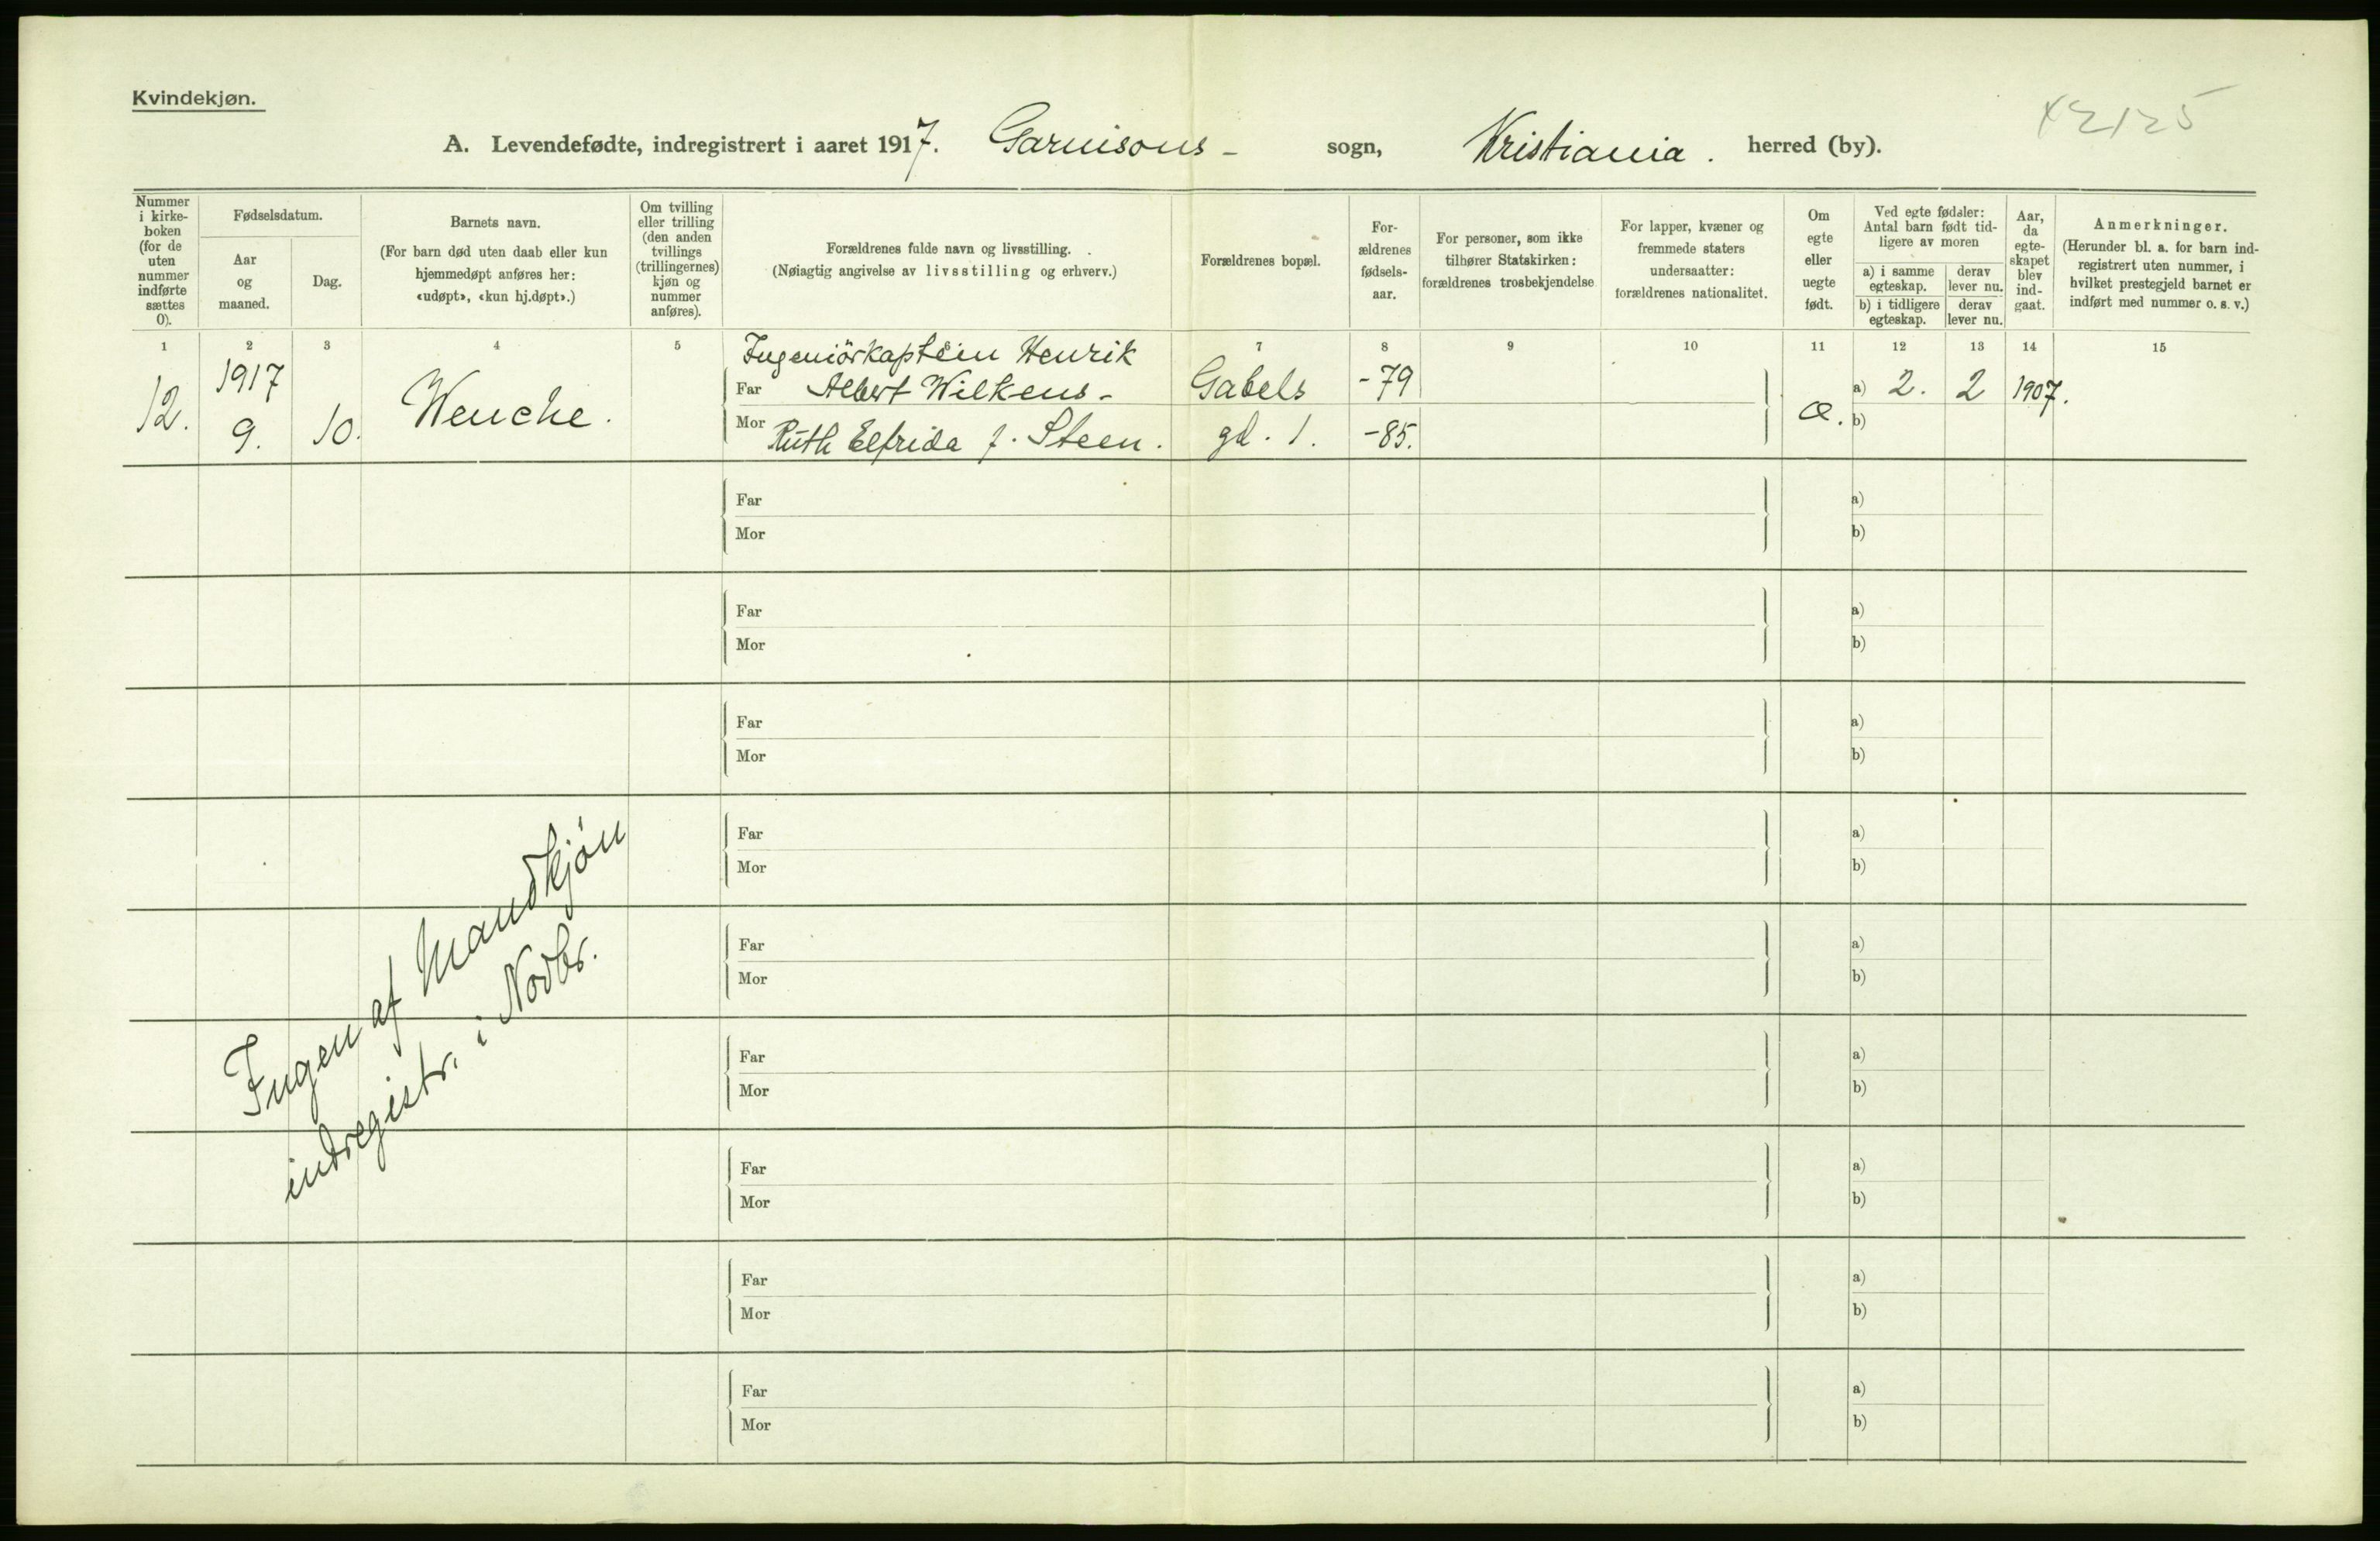 Kvindekjøn.
A. Levendefødte, indregistrert i aaret 1917. Garnisons- sogn, Kristiania. herred (by).
Nummer i kirke-boken (for de uten nummer indførte sættes 0).
Fødselsdatum.
Aar og maaned.
Dag.
Barnets navn.
(For barn død uten daab eller kun hjemmedøpt anføres her: «udøpt», «kun hj.døpt».)
Om tvilling eller trilling (den anden tvillings (trillingernes) kjøn og nummer anføres).
Forældrenes fulde navn og livsstilling.
(Nøiagtig angivelse av livsstilling og erhverv.)
Forældrenes bopæl.
For-ældrenes fødsels-aar.
For personer, som ikke tilhører Statskirken: forældrenes trosbekjendelse
For lapper, kvæner og fremmede staters undersaatter: forældrenes nationalitet.
Om egte eller uegte født.
Ved egte fødsler: Antal barn født tid-ligere av moren
a) i samme egteskap.
derav lever nu.
b) i tidligere egteskap.
derav lever nu.
Aar, da egte-skapet blev ind-gaat.
Anmerkninger.
(Herunder bl. a. for barn ind-registrert uten nummer, i hvilket prestegjeld barnet er indført med nummer o. s. v.)
1 2 3 4 5 7 8 9 10 11 12 13 14 15
12. 1917 9. 10. Wenche.
Ingeniörkaptein Henrik
Far Albert Wilkens- Gabels -79 a) 2. 2 1907.
Mor Ruth Elfrida f. Steen. gd. 1. -85. æ. b)
Far a)
Mor b)
Far a)
Mor b)
Far a)
Mor b)
Far a)
Mor b)
Far a)
Mor b)
Far a)
Mor b)
Far a)
Mor b)
Far a)
Mor b)
Far a)
Mor b)
Ingen af Mandkjön
indregistr. i Novbr.